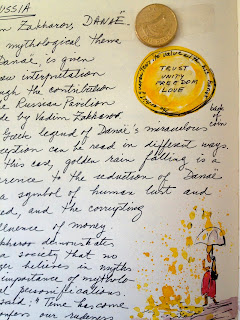 RUSSIA
m Zakharov, DANAË
mythological theme
Danaë, is given
new interpretation
ough the contribution
e Russian Pavilion
de by Vadim Zakharov
Greek legend of Danaë's miraculous
ception can be read in different ways.
this case, golden rain falling is a
erence to the seduction of Danaë
a symbol of human lust and
ed, and the corrupting
fluence of money.
kharov demonstrate
a society that no
ger believes in myths
importance of mytholo
al personifications.
said: "Time has come
confess our rudeness
TRUST
UNITY
FREEDOM
LOVE
back
of
coin